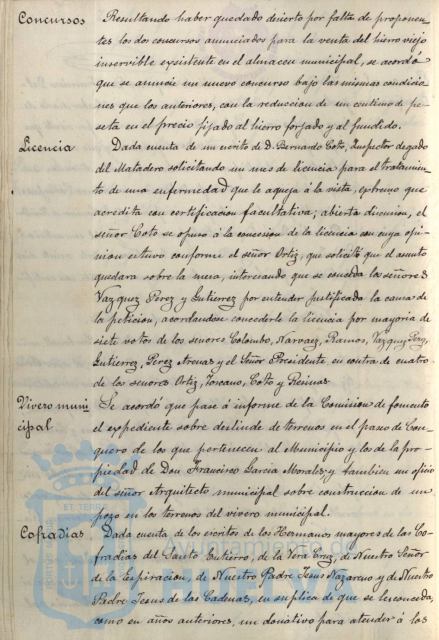 Concursos Resultando haber quedado desierto por falta de proponen-
tes los dos concursos anunciados para la venta del hierro viejo
inservible existente en el almacen municipal, se acordó
que se anuncie un nuevo concurso bajo las mismas condicio-
nes que los anteriores, con la reduccion de un centimo de pe-
seta en el precio fijado al hierro forjado y al fundido.
Licencia Dada cuenta de un escrito de D. Bernardo Coto, Inspector delegado
del Matadero solicitando un mes de licencia para el tratamien-
to de una enfermedad que le aqueja á la vista, extremo que
acredita con certificacion facultativa; abierta discusion, el
señor Coto se opuso á la concesion de la licencia con cuya opi-
nion estuvo conforme el señor Ortiz, que solicitó que el asunto
quedara sobre la mesa, interesando que se conceda los señores
Vazquez Perez y Gutierrez por entender justificada la causa de
la peticion, acordandose concederle la licencia por mayoria de
siete votos de los señores Colombo, Narvaez, Ramos, Vazquez Perez,
Gutierrez, Perez Arenas y el Señor Presidente en contra de cuatro
de los señores Ortiz, Toscano, Coto y Reinas
Vivero muni Se acordó que pase á informe de la Comision de fomento
cipal el expediente sobre deslinde de terrenos en el paseo de Con-
quero de los que pertenecen al Municipio y los de la pro-
piedad de Don Francisco Garcia Morales y tambien un oficio
del señor Arquitecto municipal sobre construccion de un
pozo en los terrenos del vivero municipal.
Cofradias Dada cuenta de los escritos de los Hermanos mayores de las Co-
fradias del Santo Entierro, de la Vera Cruz, de Nuestro Señor
de la Espiracion, de Nuestro Padre Jesus Nazareno y de Nuestro
Padre Jesus de las Cadenas, en suplica de que se les conceda,
como en años anteriores, un donativo para atender á los